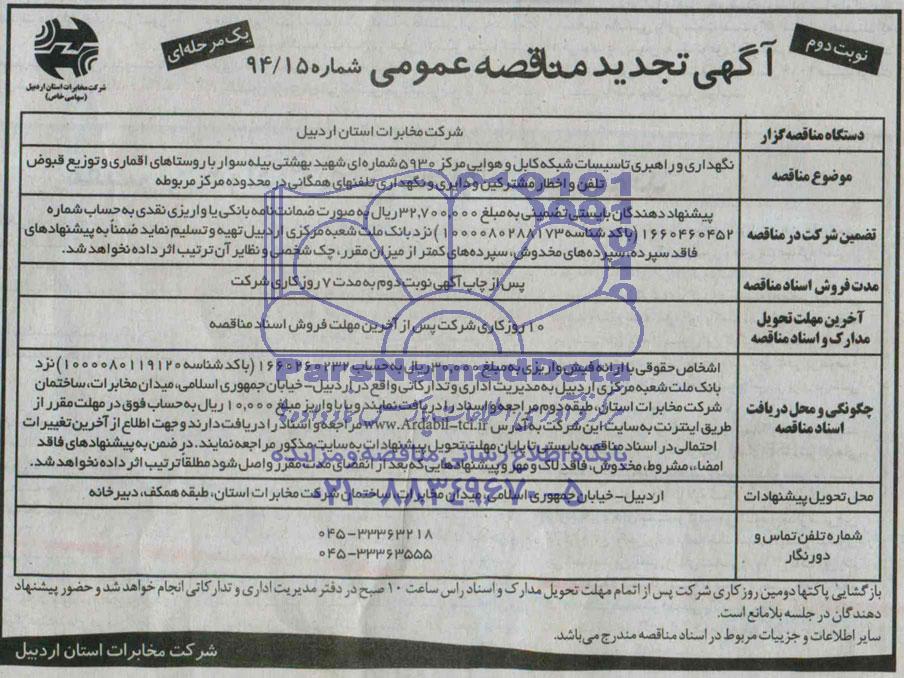 نوبت دوم
آگهی تجدید مناقصه عمومی شماره ۹۴/۱۵
یک مرحله‌ای
شرکت مخابرات استان اردبیل
(سهامی خاص)
دستگاه مناقصه گزار
شرکت مخابرات استان اردبیل
موضوع مناقصه
نگهداری و راهبری تاسیسات شبکه کابل و هوایی مرکز ۵۹۳۰ شماره‌ای شهید بهشتی بیله سوار با روستاهای اقماری و توزیع قبوض
تلفن و اخطار مشترکین و دایری و نگهداری تلفنهای همگانی در محدوده مرکز مربوطه
تضمین شرکت در مناقصه
پیشنهاد دهندگان بایستی تضمینی به مبلغ ۳۲,۷۰۰,۰۰۰ ریال به صورت ضمانت‌نامه بانکی یا واریزی نقدی به حساب شماره
۱۶۶۰۴۶۰۴۵۲ (با کد شناسه ۱۰۰۰۰۸۰۲۸۸۱۷۳) نزد بانک ملت شعبه مرکزی اردبیل تهیه و تسلیم نماید ضمناً به پیشنهادهای
فاقد سپرده، سپرده‌های مخدوش، سپرده‌های کمتر از میزان مقرر، چک شخصی و نظایر آن ترتیب اثر داده نخواهد شد.
مدت فروش اسناد مناقصه
پس از چاپ آگهی نوبت دوم به مدت ۷ روز کاری شرکت
آخرین مهلت تحویل
مدارک و اسناد مناقصه
۱۰ روز کاری شرکت پس از آخرین مهلت فروش اسناد مناقصه
چگونگی و محل دریافت
اسناد مناقصه
اشخاص حقوقی با ارائه فیش واریزی به مبلغ ۳۰,۰۰۰ ریال به حساب ۱۶۶۰۲۶۰۲۳۲ (با کد شناسه ۱۰۰۰۰۸۰۱۱۹۱۲۰) نزد
بانک ملت شعبه مرکزی اردبیل به مدیریت اداری و تدارکاتی واقع در اردبیل – خیابان جمهوری اسلامی، میدان مخابرات، ساختمان
شرکت مخابرات استان، طبقه دوم مراجعه و اسناد را دریافت نمایند و یا با واریز مبلغ ۱۰,۰۰۰ ریال به حساب فوق در مهلت مقرر از
طریق اینترنت به سایت این شرکت به آدرس www.Ardabil-tci.ir مراجعه و اسناد را دریافت دارند و جهت اطلاع از آخرین تغییرات
احتمالی در اسناد مناقصه بایستی تا پایان مهلت تحویل پیشنهادات به سایت مذکور مراجعه نمایند. در ضمن به پیشنهادهای فاقد
امضاء، مشروط، مخدوش، فاقد لاک و مهر و پیشنهادهایی که بعد از انقضای مدت مقرر واصل شود مطلقاً ترتیب اثر داده نخواهد شد.
محل تحویل پیشنهادات
اردبیل – خیابان جمهوری اسلامی، میدان مخابرات، ساختمان شرکت مخابرات استان، طبقه همکف، دبیرخانه
شماره تلفن تماس و
دورنگار
۰۴۵-۳۳۳۶۳۲۱۸
۰۴۵-۳۳۳۶۳۵۵۵
بازگشایی پاکتها دومین روز کاری شرکت پس از اتمام مهلت تحویل مدارک و اسناد راس ساعت ۱۰ صبح در دفتر مدیریت اداری و تدارکاتی انجام خواهد شد و حضور پیشنهاد
دهندگان در جلسه بلامانع است.
سایر اطلاعات و جزییات مربوط در اسناد مناقصه مندرج می‌باشد.
شرکت مخابرات استان اردبیل
ParsNamadData
پایگاه اطلاع رسانی مناقصه و مزایده
۰۲۱-۸۸۳۴۹۶۷۰-۵